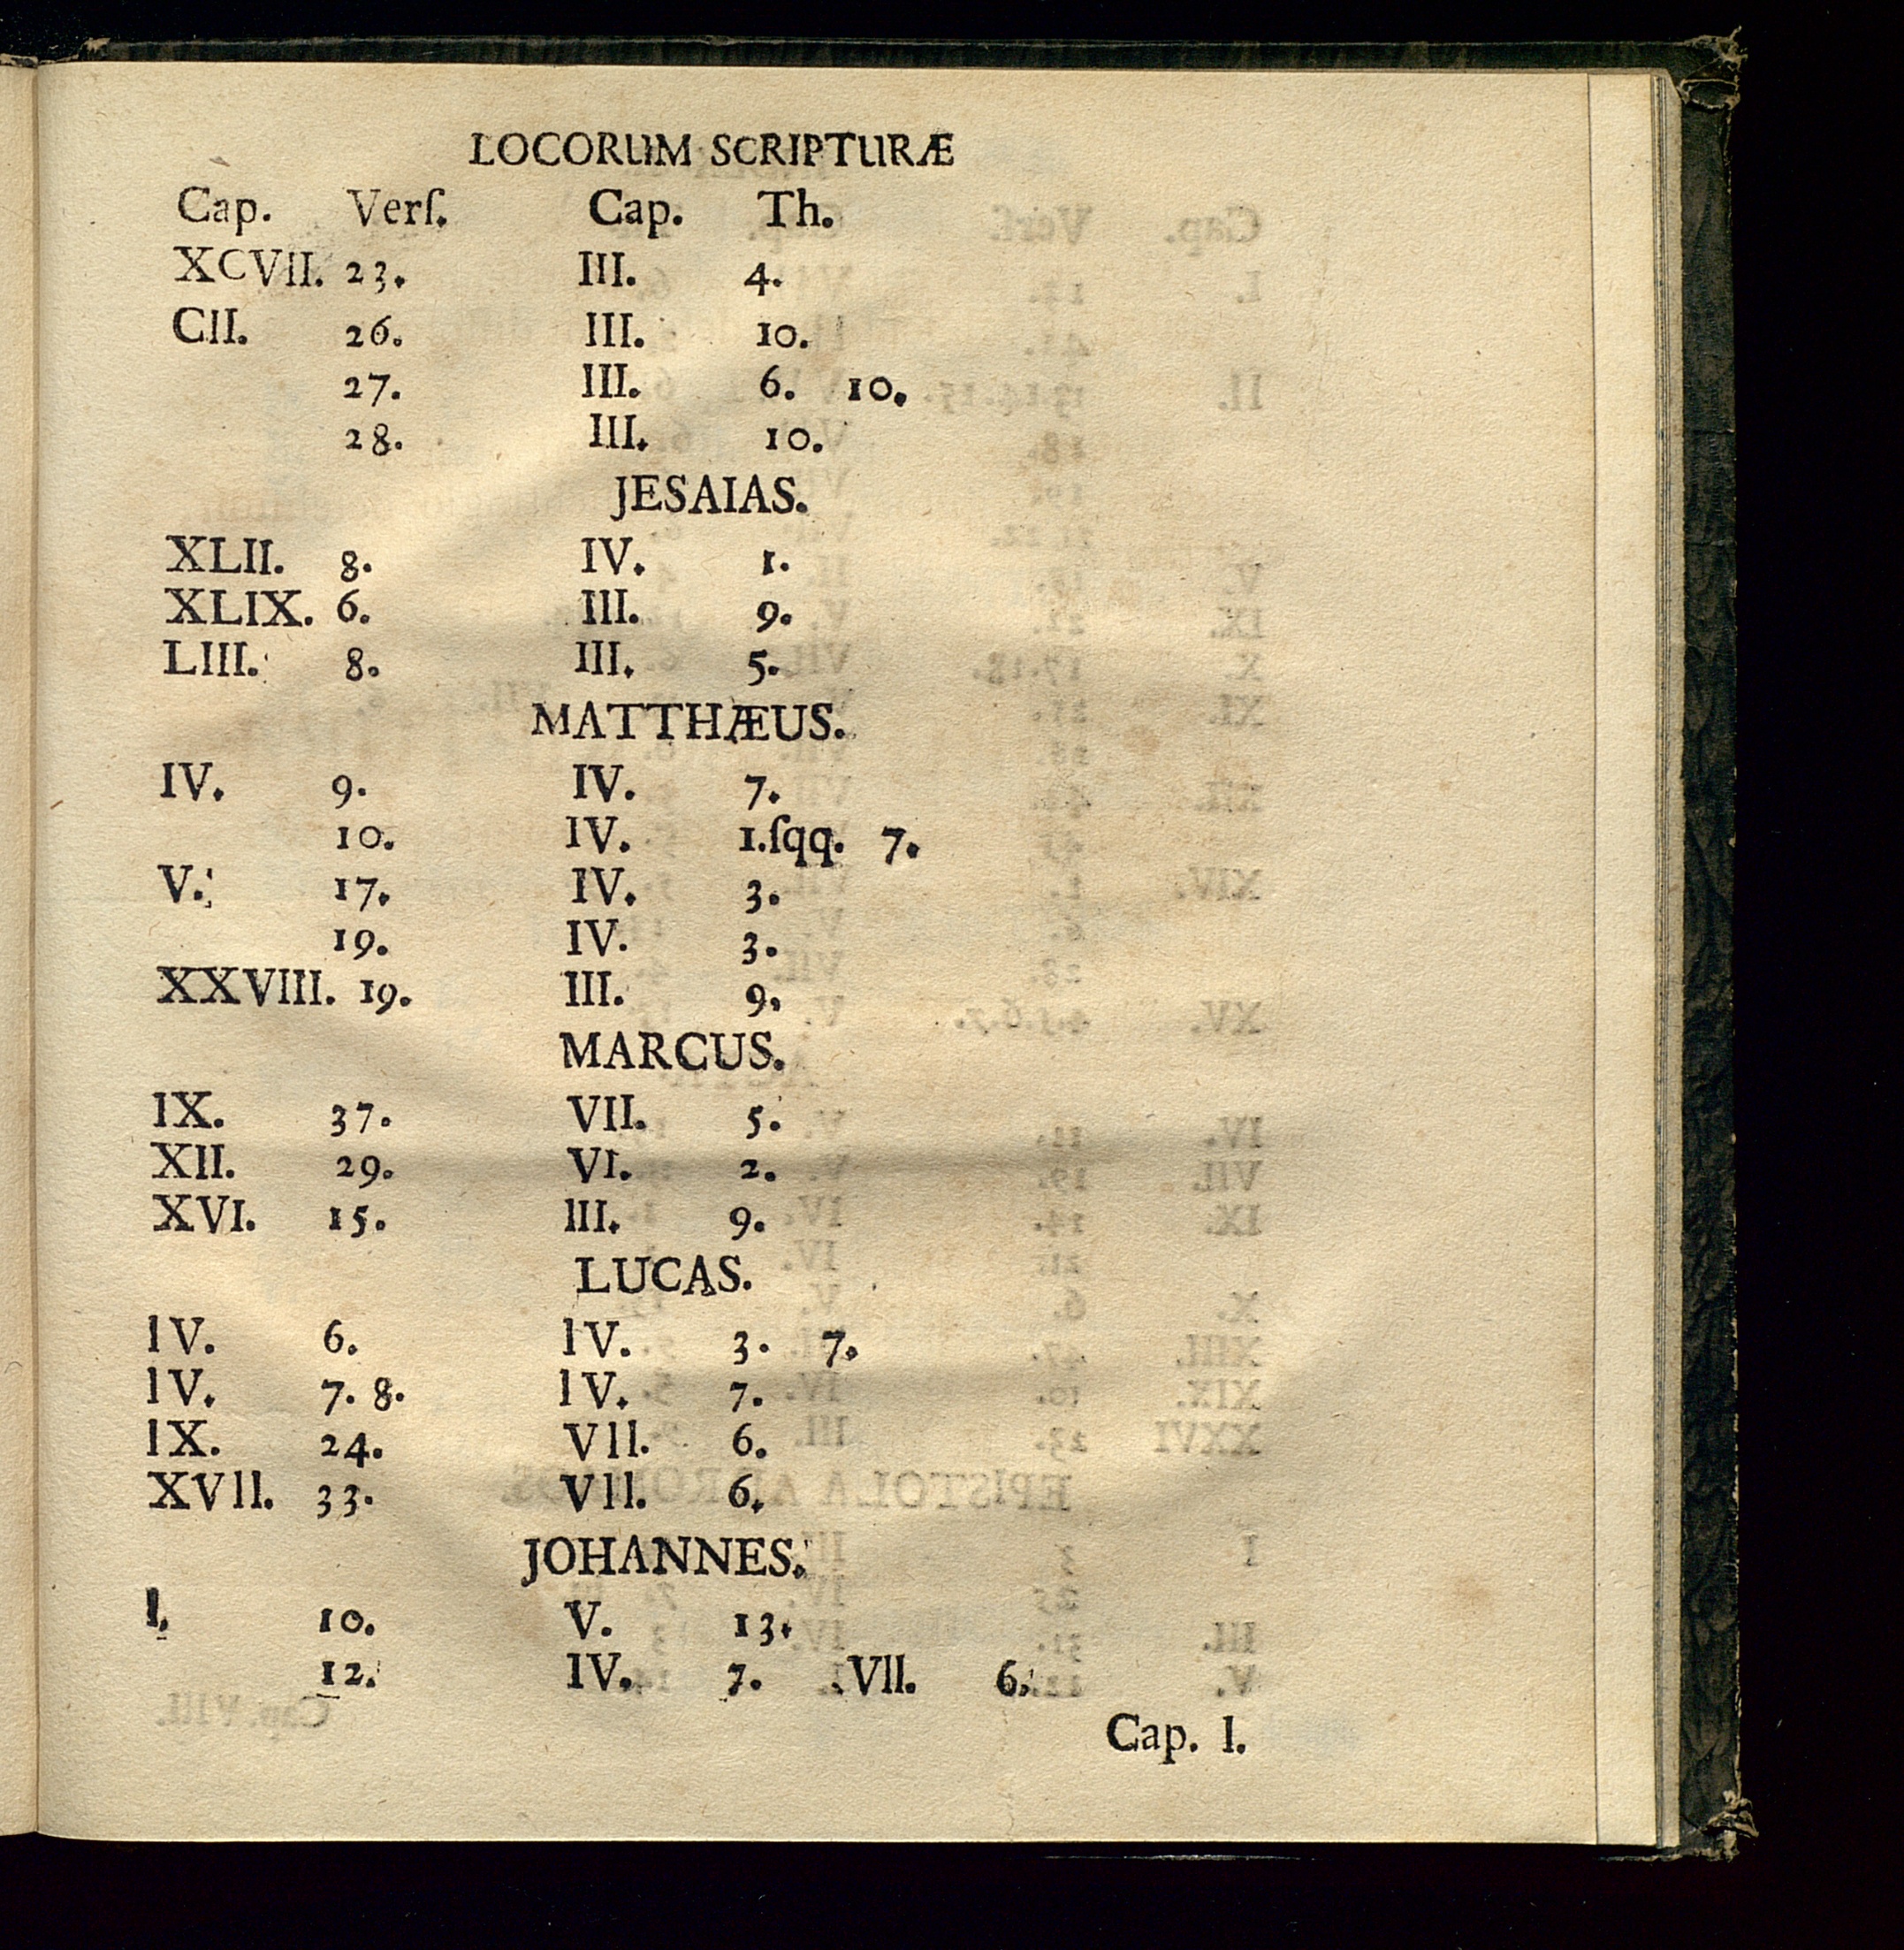 LOCORUM SCRIPTURÆ
Cap. Verſ. Cap. Th.
XCVII. 23. III. 4.
CII. 26. III. 10.
27. III. 6. 10.
28. III. 10.
JESAIAS.
XLII. 8. IV. 1.
XLIX. 6. III. 9.
LIII. 8. III. 5.
MATTHÆUS.
IV. 9. IV. 7.
10. IV. 1.ſqq. 7.
V. 17. IV. 3.
19. IV. 3.
XXVIII. 19. III. 9.
MARCUS.
IX. 37. VII. 5.
XII. 29. VI. 2.
XVI. 15. III. 9.
LUCAS.
IV. 6. IV. 3. 7.
IV. 7. 8. IV. 7.
IX. 24. VII. 6.
XVII. 33. VII. 6.
JOHANNES.
I. 10. V. 13.
12. IV. 7. VII. 6.
Cap. I.